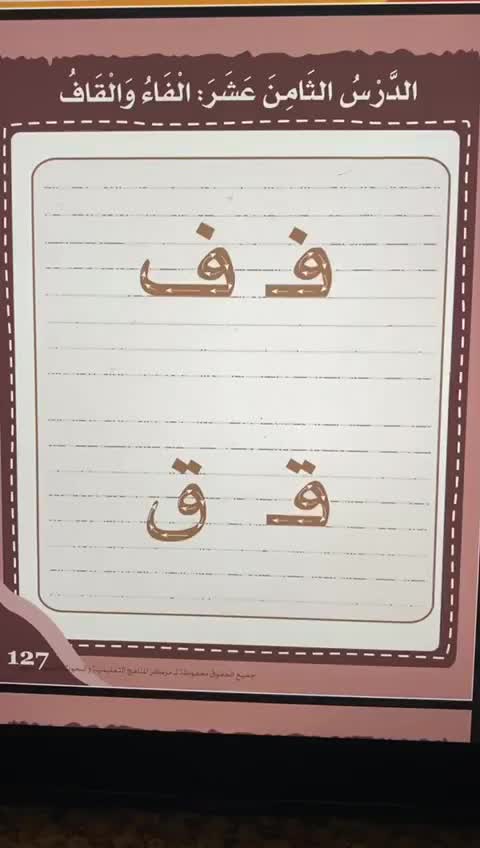 الدَّرْسُ الثَامِنَ عَشَرَ: الْفَاءُ وَالْقَافُ
فـ ف
قـ ق
127
جميع الحقوق محفوظة لـ مركز المناهج التعليمية